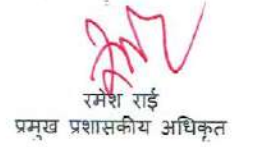 रमेश राई
प्रमुख प्रशासकीय अधिकृत